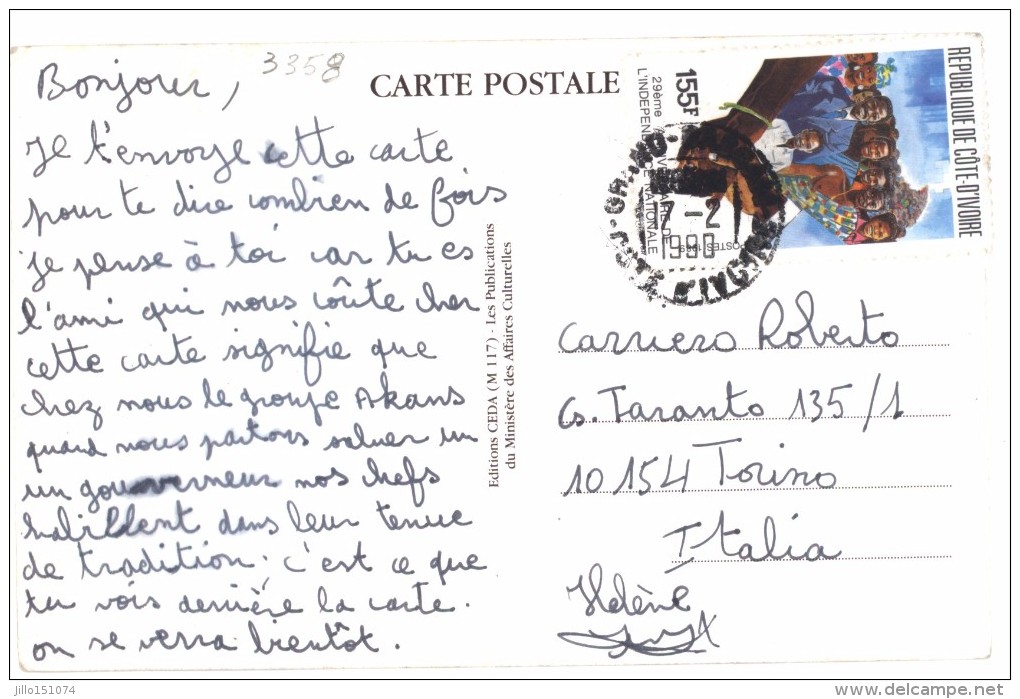 Bonjour,
3358
CARTE POSTALE
Je t'envoye cette carte
pour te dire combien de fois
je pense à toi car tu es
l'ami qui nous coûte cher
cette carte signifie que
chez nous le groupe Akans
quand nous partons saluer un
un gouverneur nos chefs
habillent dans leur tenue
de tradition; c'est ce que
tu vois derrière la carte.
on se verra bientôt.
Editions CEDA (M 117) - Les Publications
du Ministère des Affaires Culturelles
REPUBLIQUE DE CÔTE-D'IVOIRE
155F
29ème
L'INDEPENDANCE NATIONALE
POSTES 1989
7-2
1990
Carriero Roberto
Cs. Taranto 135/1
10154 Torino
Italia
Hélène
jillo151074
delcampe.net